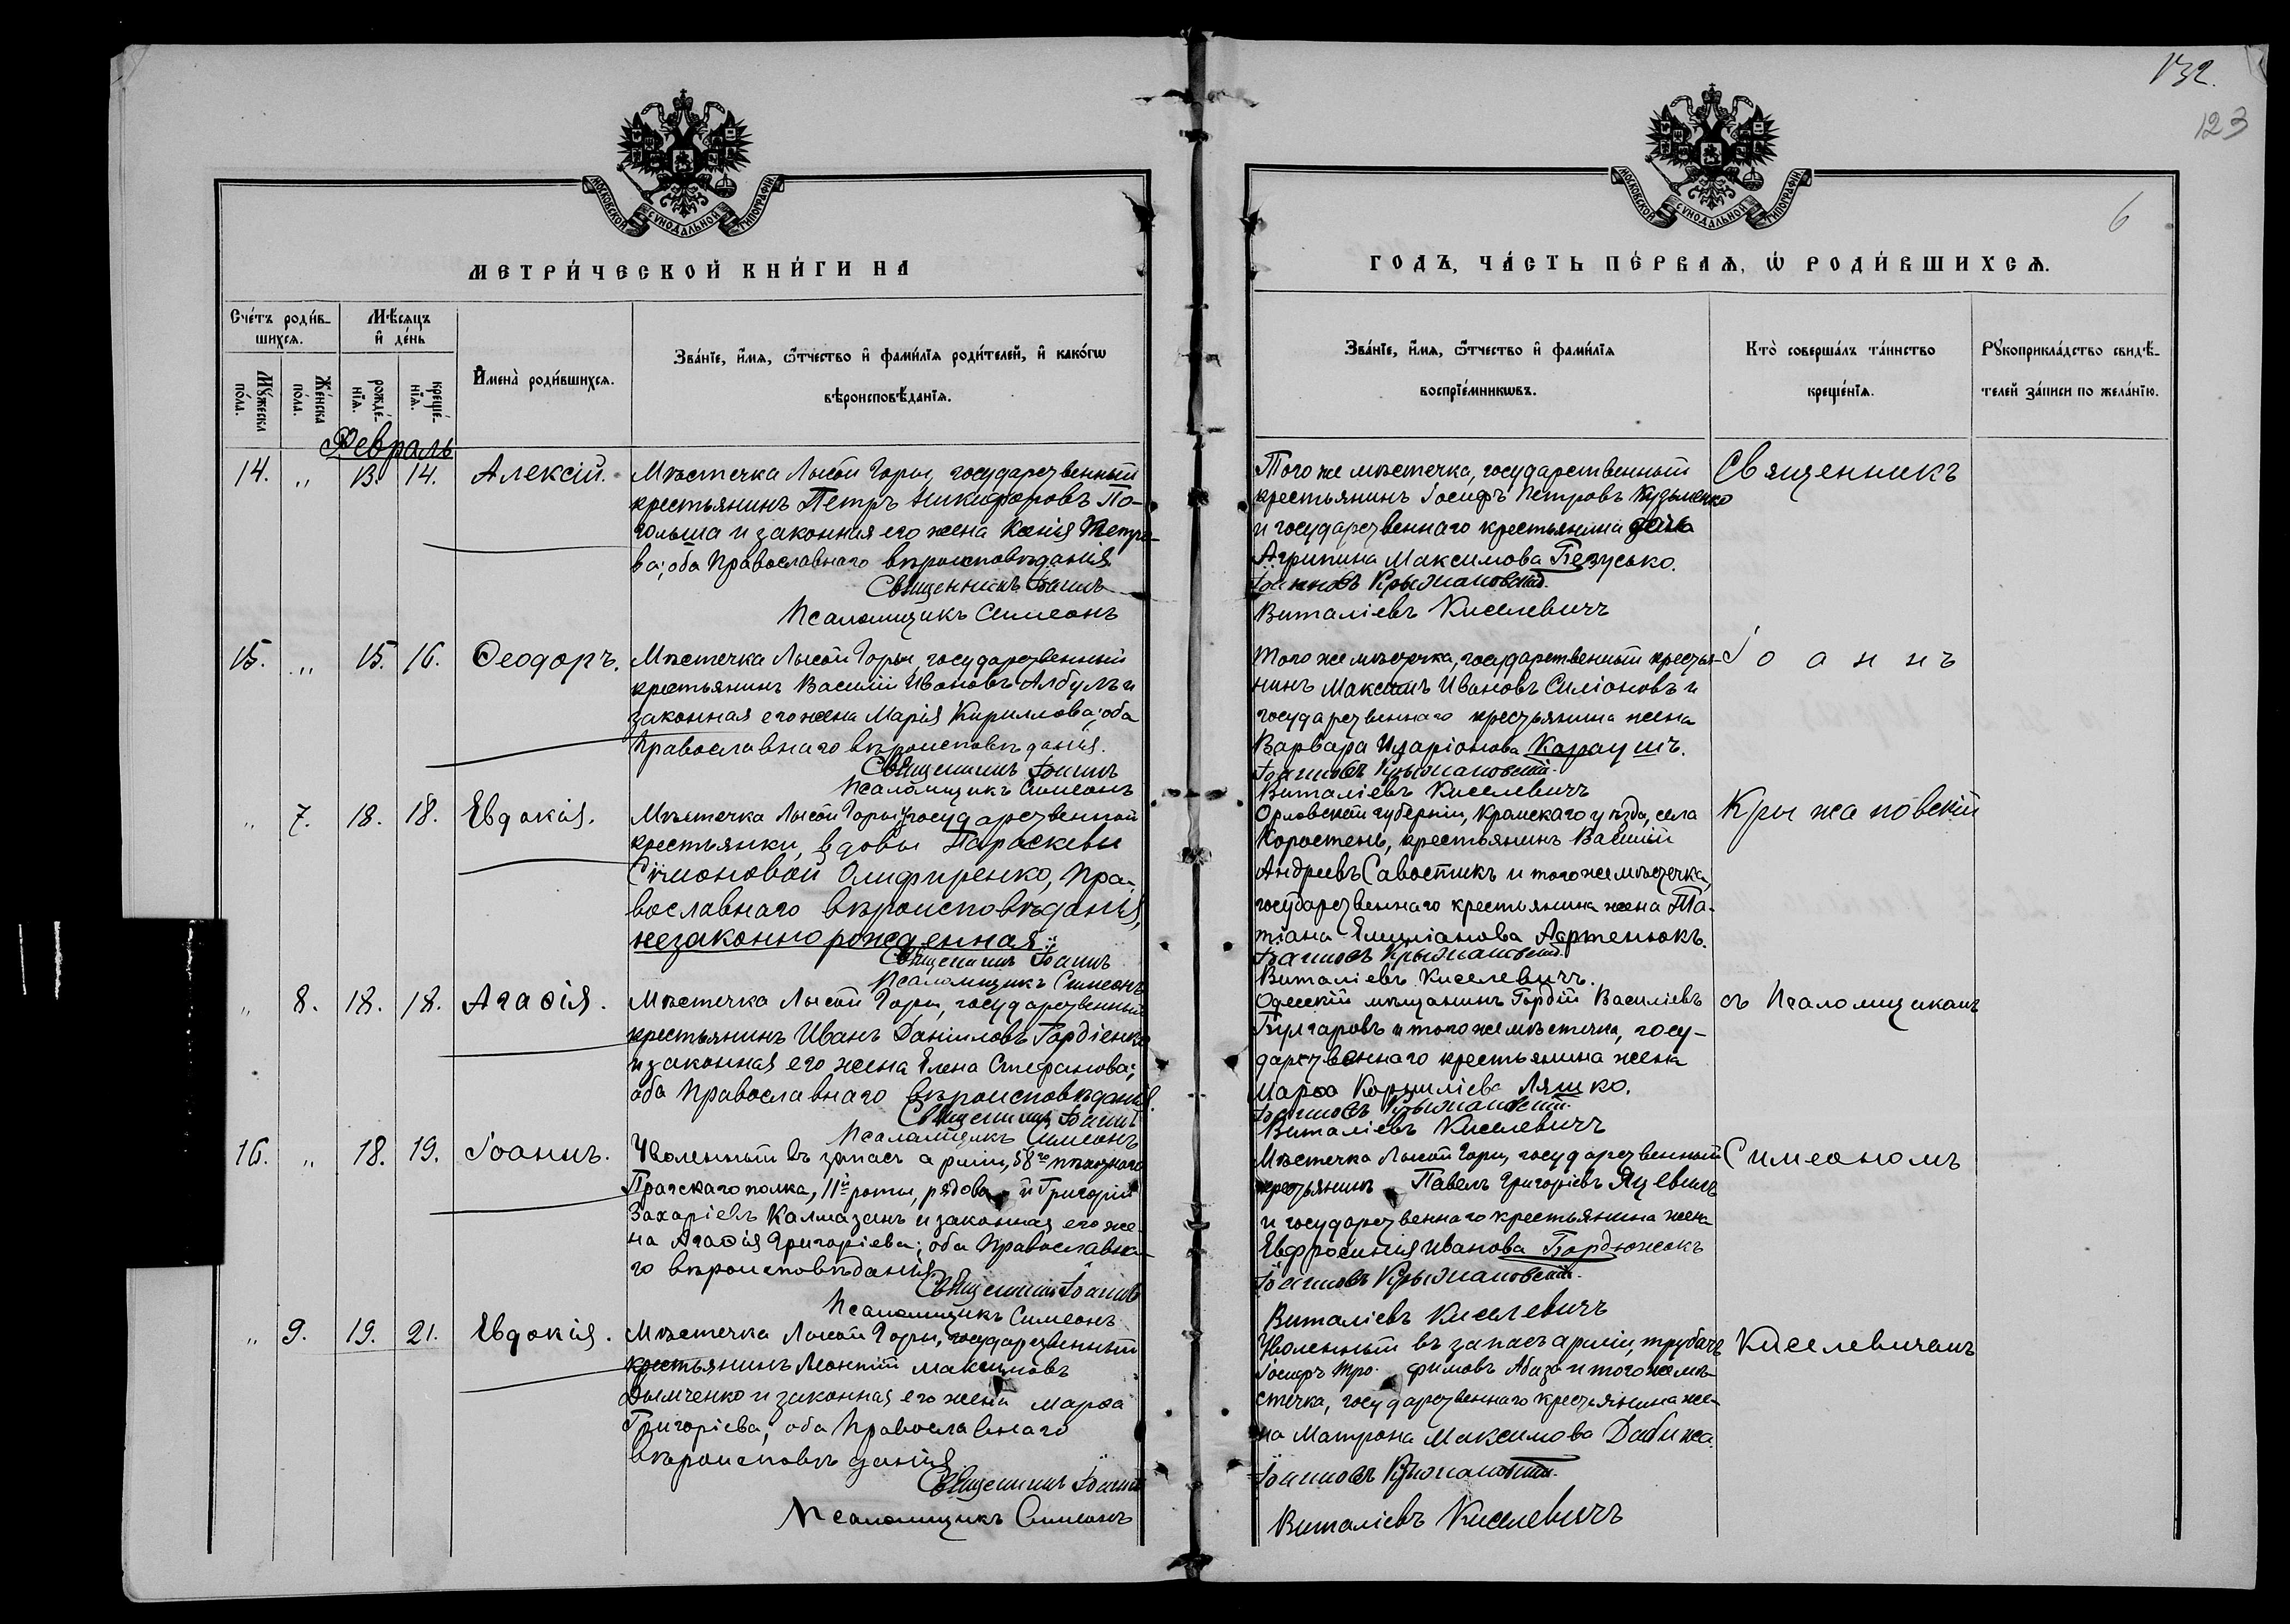 132.
123
6
МОСКОВСКОЙ СѴНОДАЛЬНОЙ ТИПОГРАФІИ
МОСКОВСКОЙ СѴНОДАЛЬНОЙ ТИПОГРАФІИ
МЕТРИ́ЧЕСКОЙ КНИ́ГИ НА
ГОДЪ, ЧА́СТЬ ПЕ́РВАѦ, Ѡ҆ РОДИ́ВШИХСѦ.
Сче́тъ роди́в-
шихсѧ.
Мѣ́сѧцъ
и҆ де́нь
Мꙋ́жеска
по́ла.
Же́нска
по́ла.
рожде́-
нїѧ.
креще́-
нїѧ.
И҆мена̀ роди́вшихсѧ.
Зва́нїе, и҆́мѧ, ѻ҆́тчество и҆ фами́лїѧ роди́телей, и҆ како́гѡ
вѣроисповѣ́данїѧ.
Зва́нїе, и҆́мѧ, ѻ҆́тчество и҆ фами́лїѧ
воспрїе́мникѡвъ.
Кто̀ соверша́лъ та́инство
креще́нїѧ.
Рꙋкоприкла́дство свидѣ́-
телей за́писи по жела́нїю.
Февраль
14. „ 13. 14. Алексій.
Мѣстечка Лысой Горы, государственный
крестьянинъ Петръ Никифоровъ По-
гольша и законная его жена Ксенія Петро-
ва; оба Православнаго вѣроисповѣданія
Священникъ Іоаннъ
Псаломщикъ Симеонъ
Того же мѣстечка, государственный
крестьянинъ Іосифъ Петровъ Кузьменко
и государственнаго крестьянина
Агрипина Максимова
Іоанновъ Крыжановскій.
Виталіевъ Киселевичъ
Священникъ
15. „ 15. 16. Ѳеодоръ.
Мѣстечка Лысой Горы, государственный
крестьянинъ Василій Ивановъ Албулъ и
законная его жена Марія Кириллова; оба
Православнаго вѣроисповѣданія.
Священникъ Іоаннъ
Псаломщикъ Симеонъ
Того же мѣстечка, государственный крестья-
нинъ Максимъ Ивановъ Симіоновъ и
государственнаго крестьянина жена
Варвара Иларіонова Караушъ.
Іоанновъ Крыжановскій.
Виталіевъ Киселевичъ
Іоаннъ
„ 7. 18. 18. Евдокія.
Мѣстечка Лысой Горы, государственной
крестьянки, вдовы Параскевы
Симоновой Олифиренко, Пра-
вославнаго вѣроисповѣданія,
незаконнорожденная.
Священникъ Іоаннъ
Псаломщикъ Симеонъ
Орловской губерніи, Кромскаго уѣзда, села
Коростень, крестьянинъ Василій
Андреевъ Савостикъ и того же мѣстечка,
государственнаго крестьянина жена Та-
тіана Емиліанова Артенюкъ.
Іоанновъ Крыжановскій.
Виталіевъ Киселевичъ.
Крыжановскій
„ 8. 18. 18. Агаѳія.
Мѣстечка Лысой Горы, государственный
крестьянинъ Иванъ Даниловъ Гордіенко
и законная его жена Елена Стефанова;
оба Православнаго вѣроисповѣданія.
Священникъ Іоаннъ
Псаломщикъ Симеонъ
Одесскій мѣщанинъ Гордій Василіевъ
Булгаровъ и того же мѣстечка, госу-
дарственнаго крестьянина жена
Марѳа Корниліева Ляшко.
Іоанновъ Крыжановскій.
Виталіевъ Киселевичъ
съ Псаломщикомъ
16. „ 18. 19. Іоаннъ.
Уволенный въ запасъ арміи, 58го пѣхотнаго
Прагскаго полка, 11й роты, рядовой Григорій
Захаріевъ Калмазанъ и законная его же-
на Агаѳія Григоріева; оба Православна-
го вѣроисповѣданія
Священникъ Іоаннъ
Псаломщикъ Симеонъ
Мѣстечка Лысой Горы, государственный
крестьянинъ Павелъ Григоріевъ Яцевилъ
и государственнаго крестьянина жена
Евфросинія Иванова Бордюжокъ
Іоанновъ Крыжановскій.
Виталіевъ Киселевичъ
Симеономъ
„ 9. 19. 21. Евдокія.
Мѣстечка Лысой Горы, государственный
крестьянинъ Леонтій Максимовъ
Дымченко и законная его жена Марѳа
Григоріева; оба Православнаго
вѣроисповѣданія
Священникъ Іоаннъ
Псаломщикъ Симеонъ
Уволенный въ запасъ арміи, трубачъ
Іосифъ Трофимовъ Абаза и того же мѣ-
стечка, государственнаго крестьянина же-
на Матрона Максимова Дабижа.
Іоанновъ Крыжановскій.
Виталіевъ Киселевичъ
Киселевичемъ